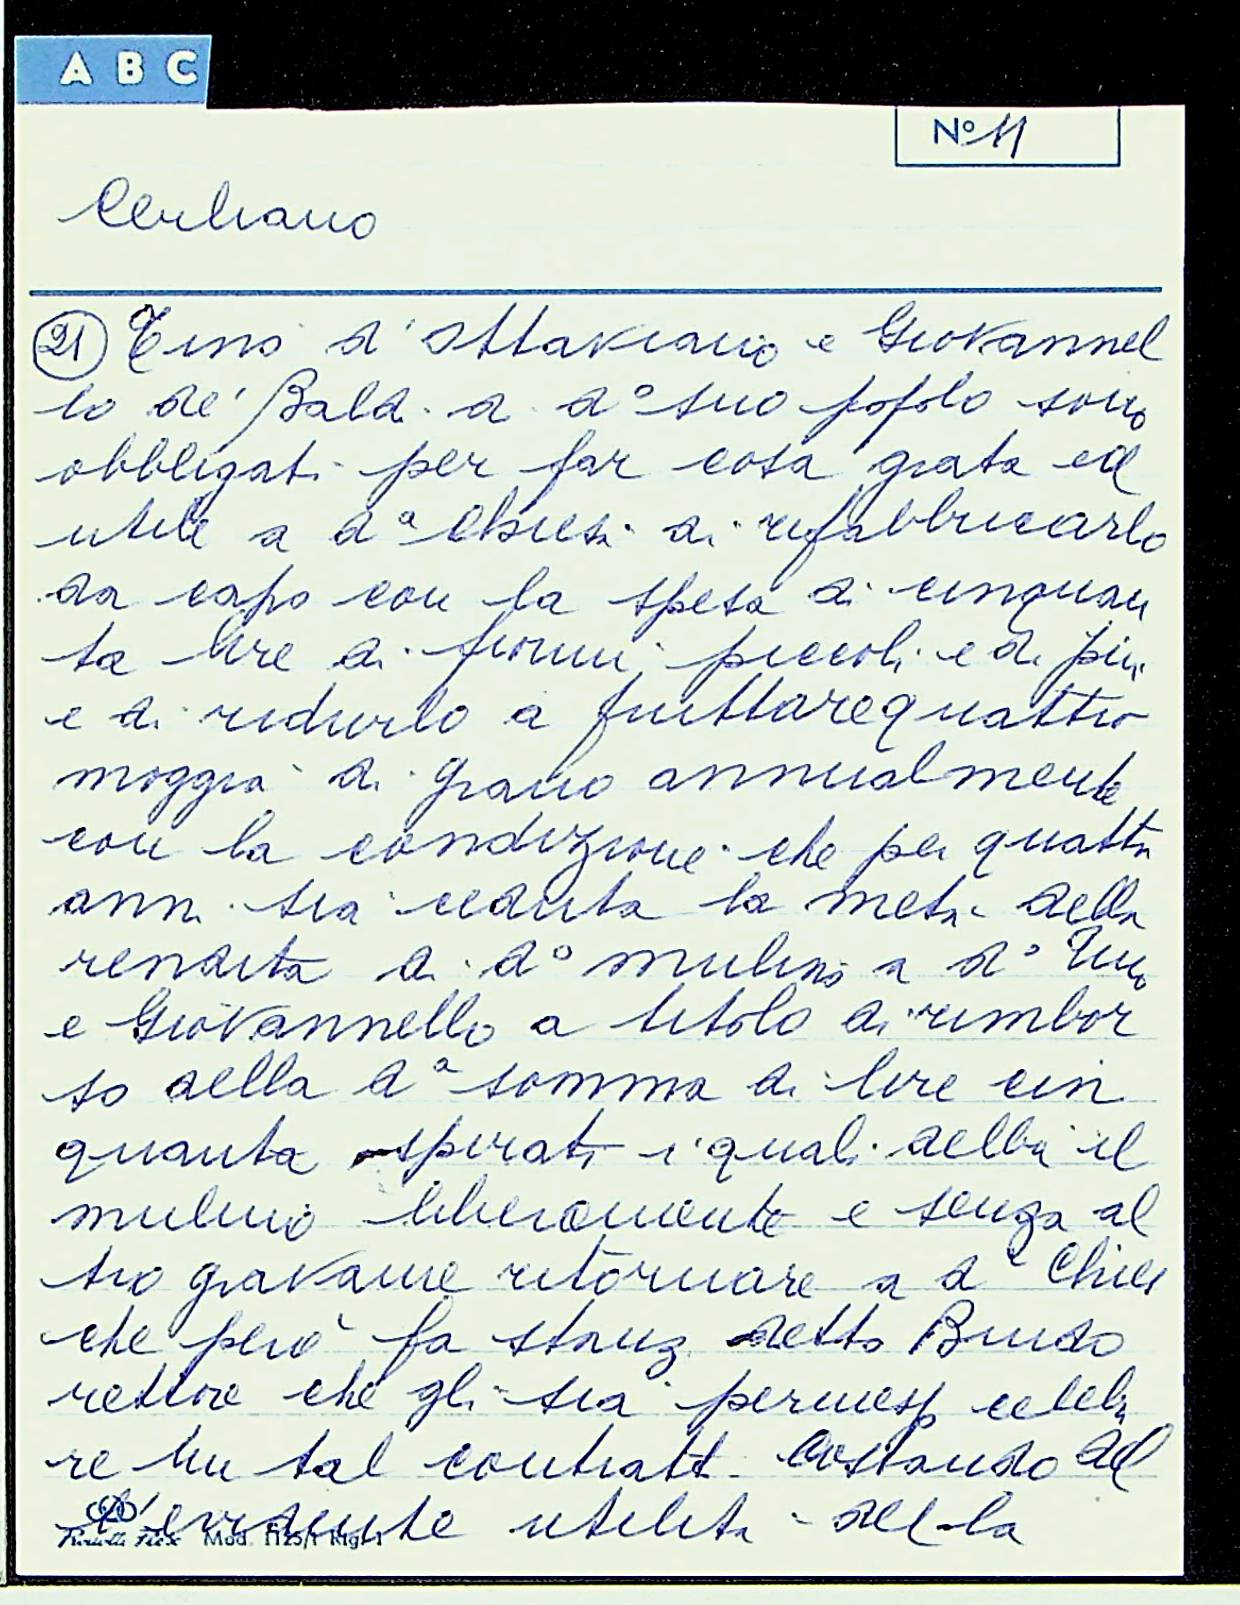 A B C
Nº 11
Cerliano
21 Tino d'Ottaviano e Giovannel
lo de' Bald. di dº suo popolo sono
obbligati per far cosa grata ed
utile a dª Chiesa di rifabbricarlo
da capo con la spesa di cinquan
ta lire di fiorini piccoli e di più
e di ridurlo a fruttare quattro
moggia di grano annualmente
con la condizione che per quattro
anni sia ceduta la metà della
rendita di dº mulino a dº Tino
e Giovannello a titolo di rimbor
so della dª somma di lire cin
quanta spirati i quali debba il
mulino liberamente e senza al
tro gravame ritornare a dª Chiesa
che però fa stanz. detto Bindo
rettore che gli sia permesso celebra
re un tal contratt. costando del
l'evidente utilità della
Mod. 1125/1 Mg. 1